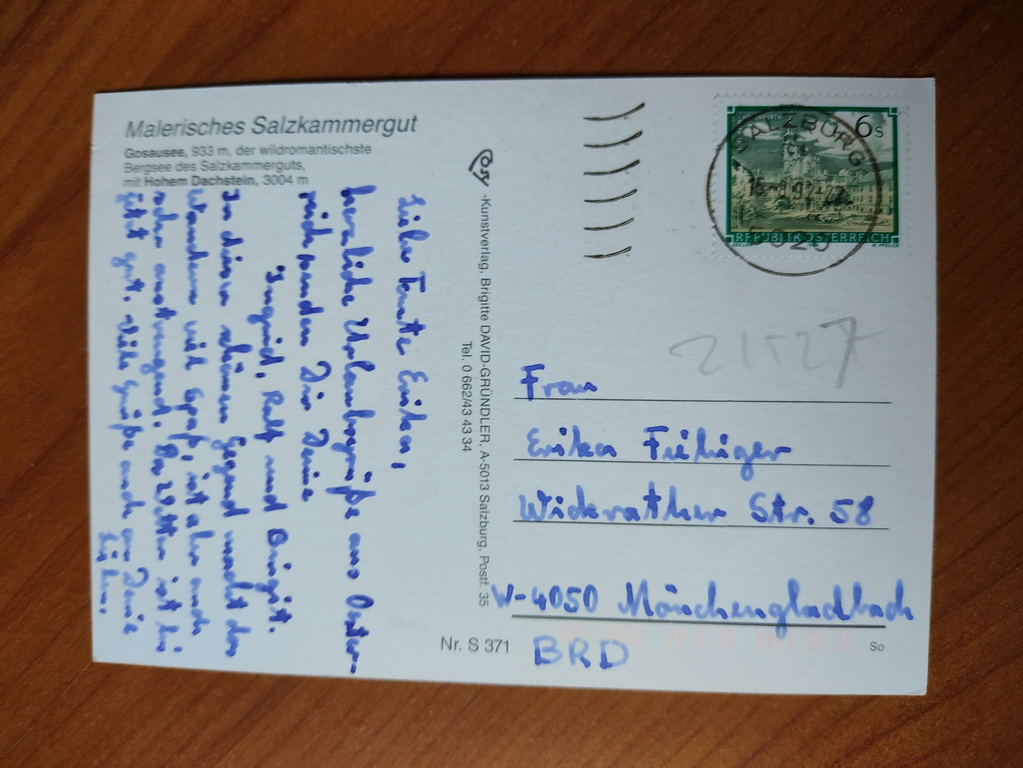 Malerisches Salzkammergut
Gosausee, 933 m, der wildromantischste
Bergsee des Salzkammerguts,
mit Hohem Dachstein, 3004 m
Liebe Tante Erika,
herzliche Urlaubsgrüße aus Öster-
reich senden Dir Deine
Ingrid, Ralf und Birgit.
In dieser schönen Gegend macht das
Wandern viel Spaß, ist aber auch
sehr anstrengend. Das Wetter ist bis
jetzt gut. Viele Grüße auch an Deine
Lieben.
Cosy -Kunstverlag, Brigitte DAVID-GRÜNDLER, A-5013 Salzburg, Postf. 35
Tel. 0 662/43 43 34
6 S
REPUBLIK ÖSTERREICH
SALZBURG
5020
21527
Frau
Erika
Wickrather Str. 58
W-4050 Mönchengladbach
BRD
Nr. S 371
So